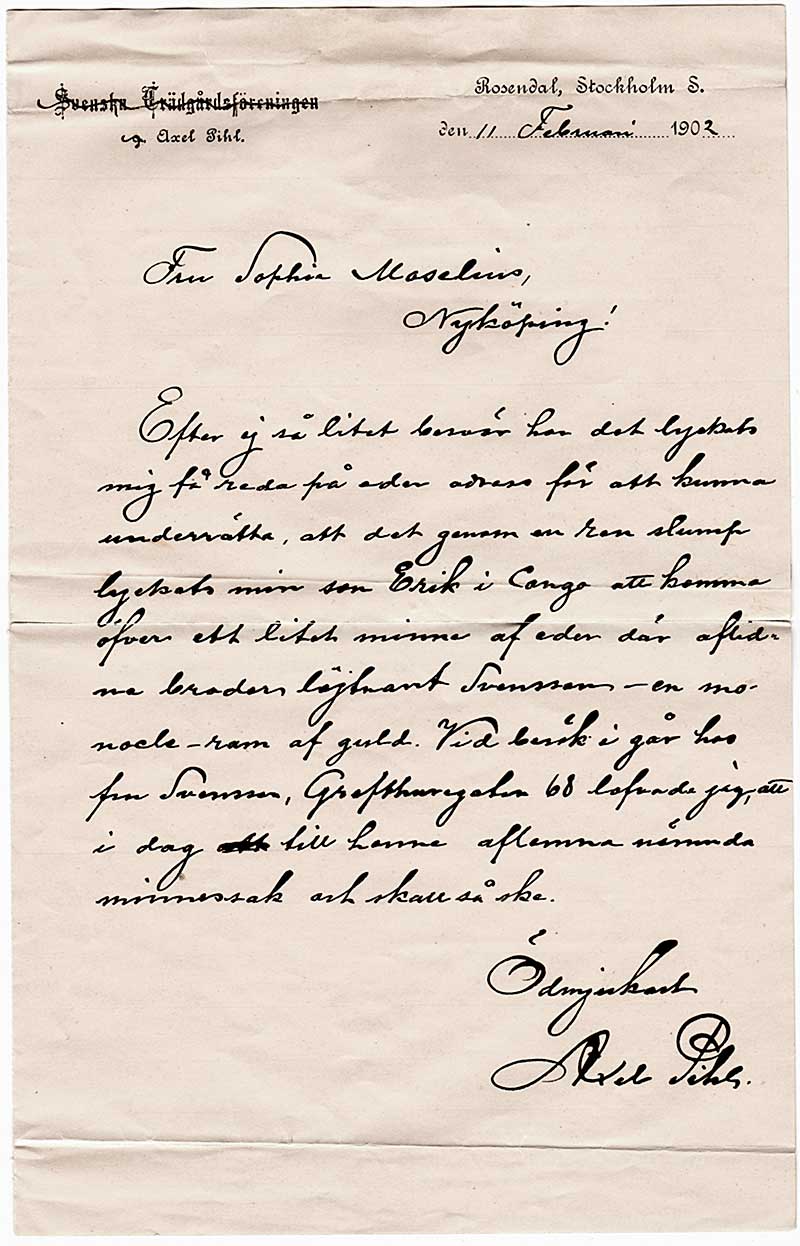 Svenska Trädgårdsföreningen
Axel Pihl.
Rosendal, Stockholm S.
den 11 Februari 1902
Fru Sophie Moselius,
Nyköping!
Efter ej så litet besvär har det lyckats
mig få reda på eder adress för att kunna
underrätta, att det genom en ren slump
lyckats min son Erik i Congo att komma
öfver ett litet minne af eder där aflid-
na broder, löjtnant Svensson – en mo-
nocle-ram af guld. Vid besök i går hos
fru Svensson, Grefthuregatan 68 lofvade jag, att
i dag till henne aflemna nämnda
minnessak och skall så ske.
Ödmjukast
Axel Pihl.